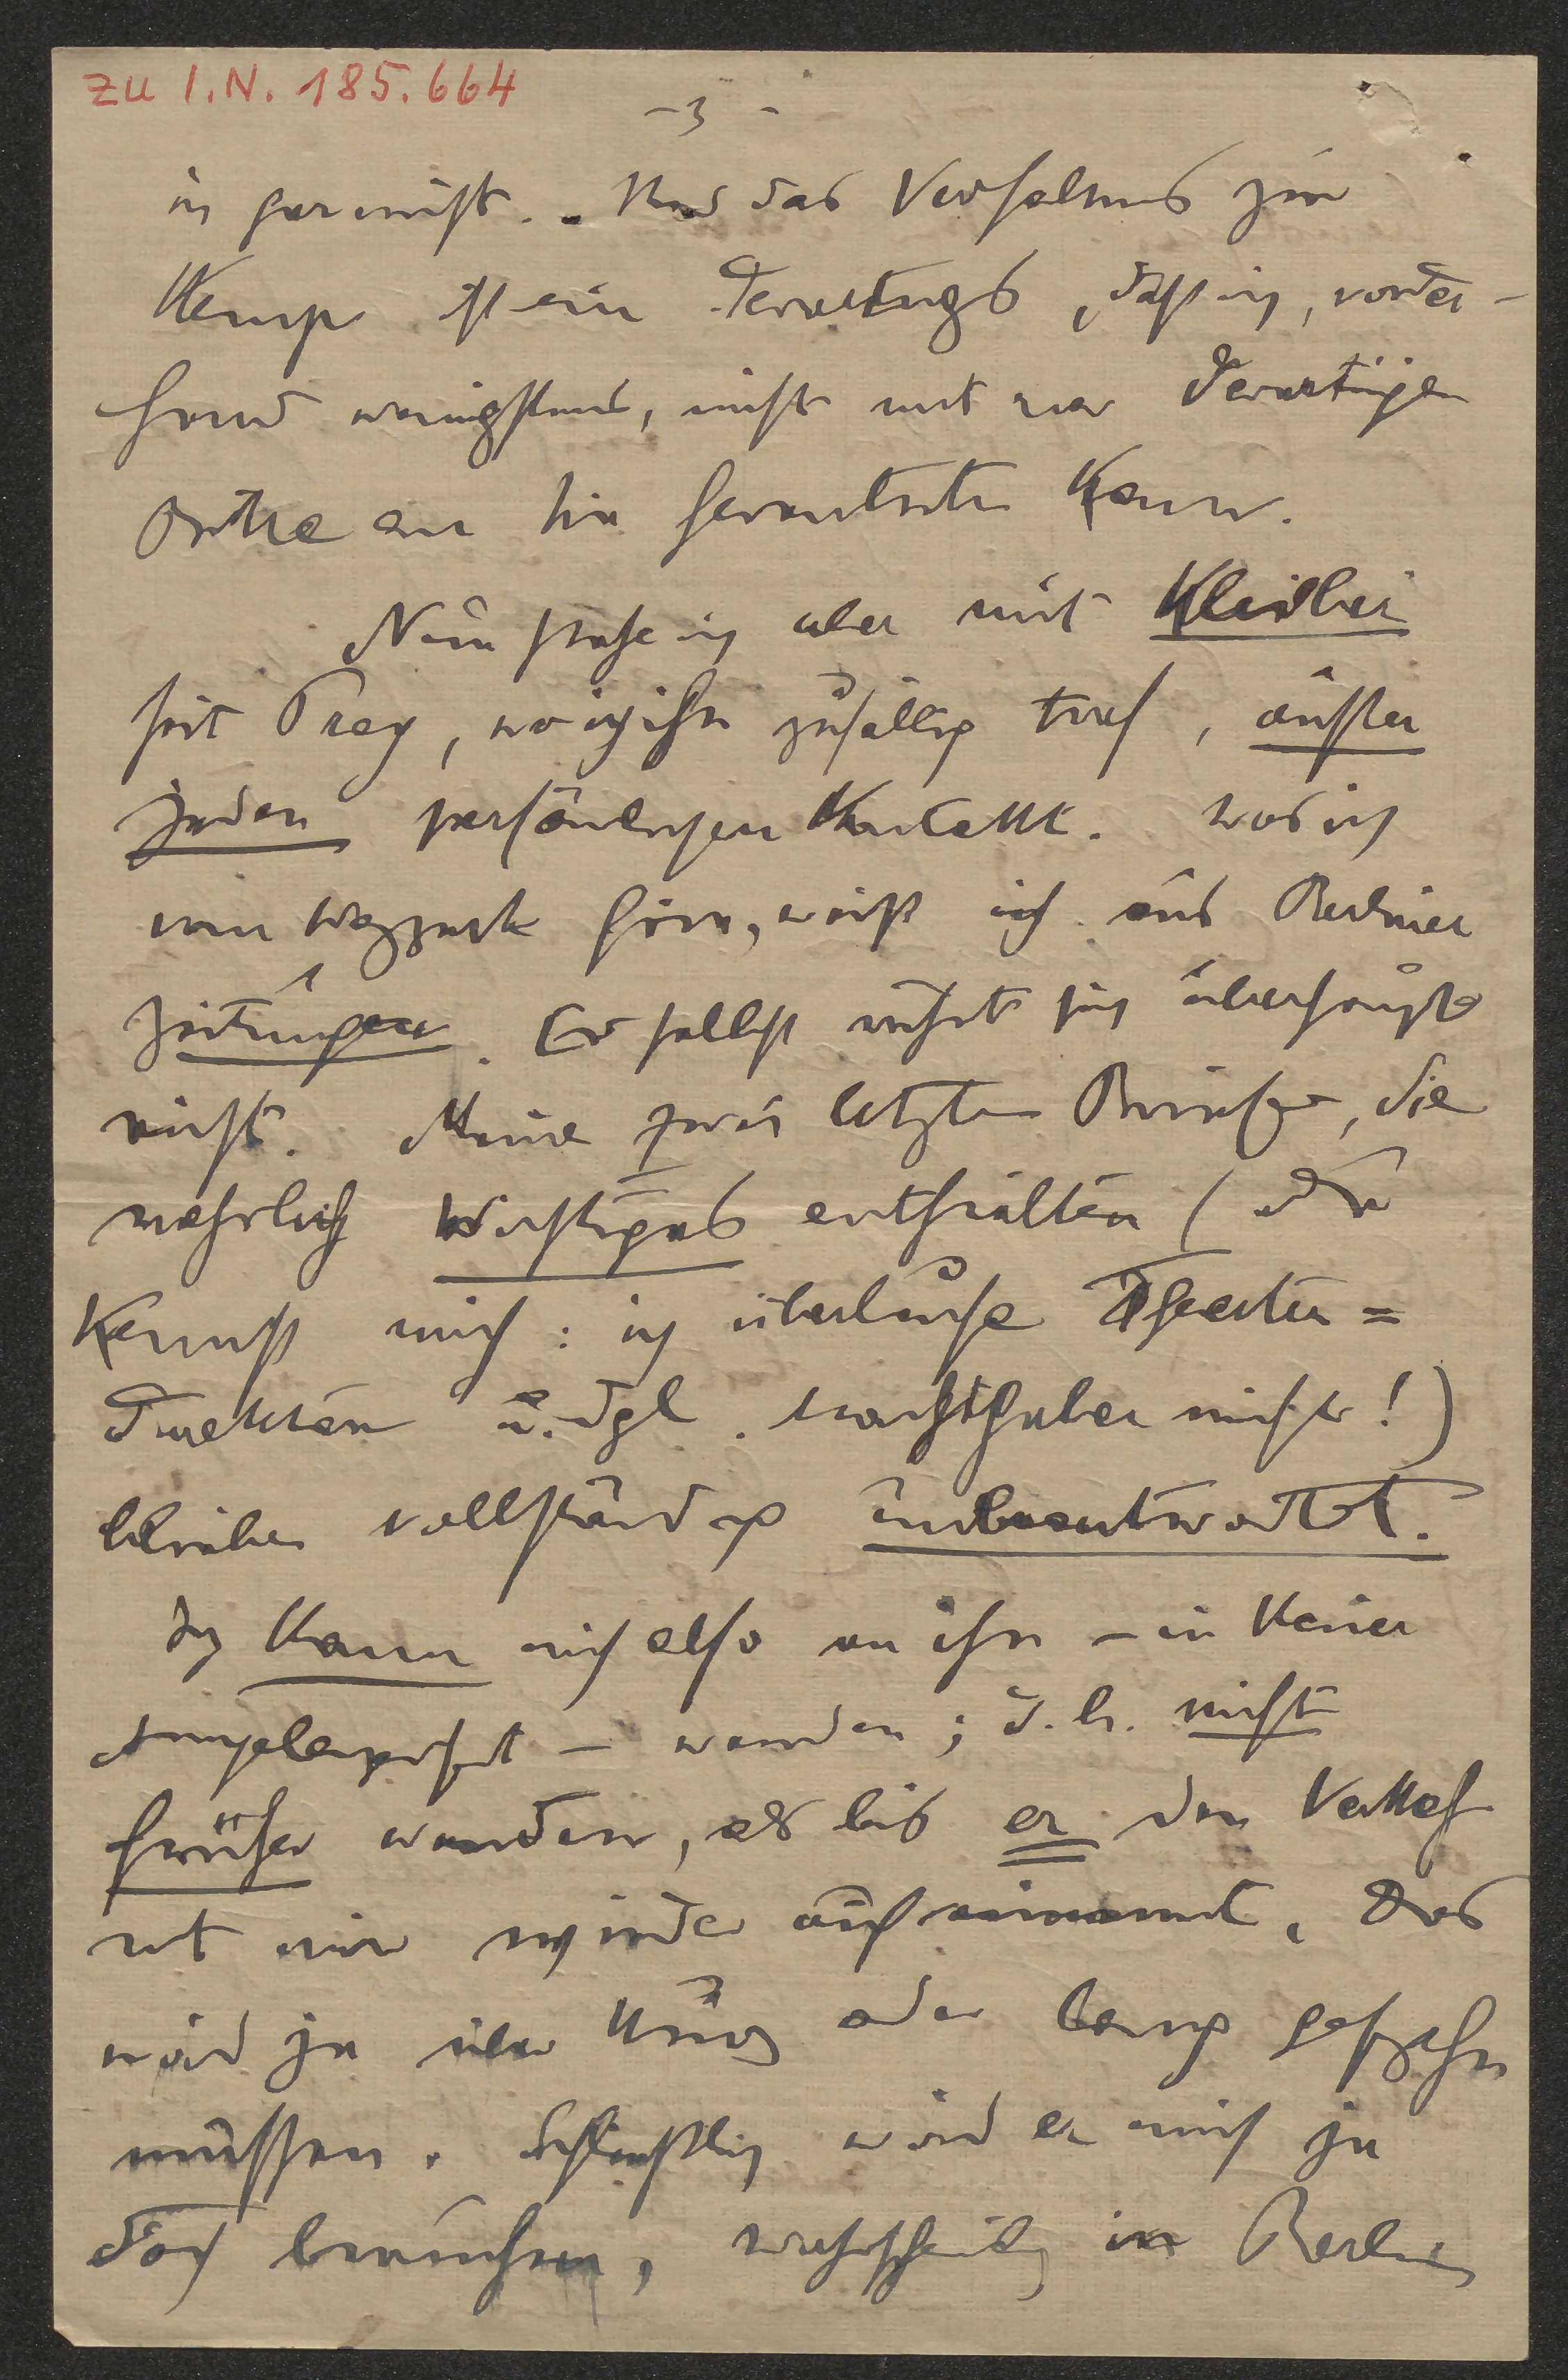 zu I.N. 185.664
- 3 -
ich gar nicht. Und das Verhältnis zur
Kemp ist ein derartiges, daß ich, vorder-
hand wenigstens, nicht mit einer derartigen
Bitte an sie herantreten kann.
Nun stehe ich aber mit Kleiber
seit Prag, wo ich ihn zufällig traf, außer
jeden persönlichen Kontakt. Was ich
von Wozzeck höre, weiß ich aus Berliner
Zeitungen. Er selbst rührt sich überhaupt
nicht. Meine zwei letzten Briefe, die
wahrlich Wichtiges enthielten (Du
kennst mich: ich überlaufe Theater=
direktoren u. dgl. Machthaber nicht!)
blieben vollständig unbeantwortet.
Ich kann mich also an ihn – in keiner
Angelegenheit – wenden; d. h. nicht
früher wenden, als bis er den Verkehr
mit mir wieder aufnimmt. Das
wird ja über kurz oder lang geschehn
müssen. Schließlich wird er mich ja
doch brauchen, wahrscheinlich in Berlin